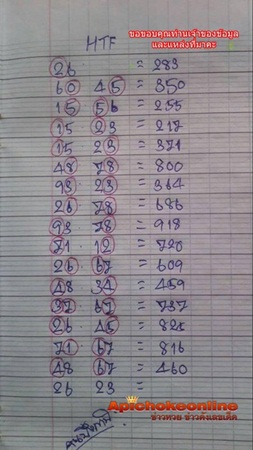 ขอขอบคุณท่านเจ้าของข้อมูล
และแหล่งที่มาค่ะ
HTF
26 = 283
60 45 = 350
15 56 = 255
15 23 = 217
15 23 = 371
48 78 = 800
93 23 = 364
26 78 = 686
93 78 = 918
71 12 = 720
26 67 = 609
48 34 = 459
37 67 = 737
26 45 = 825
71 67 = 816
48 67 = 460
26 23 =
Apichokeonline
ข่าวหวย ข่าวดังเลขเด็ด